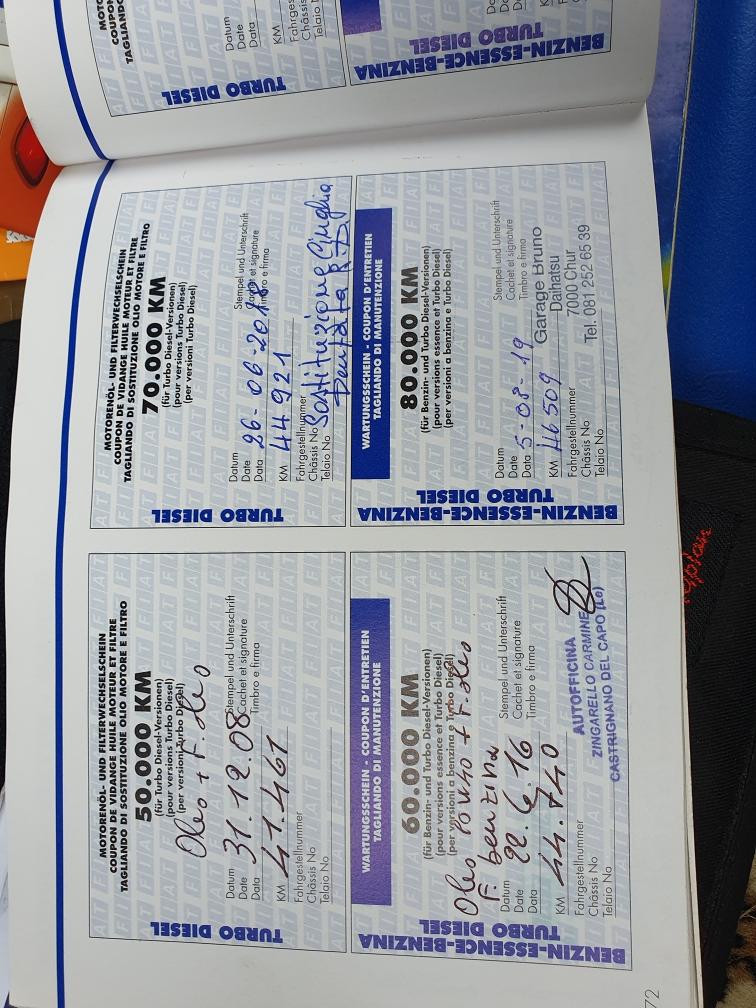 MOTORENÖL- UND FILTERWECHSELSCHEIN
COUPON DE VIDANGE HUILE MOTEUR ET FILTRE
TAGLIANDO DI SOSTITUZIONE OLIO MOTORE E FILTRO
50.000 KM
(für Turbo Diesel-Versionen)
(pour versions Turbo Diesel)
(per versioni Turbo Diesel)
Olio + F. Olio
Datum
Date
Data
31.12.08
Stempel und Unterschrift
Cachet et signature
Timbro e firma
KM 41.461
Fahrgestellnummer
Châssis No
Telaio No
TURBO DIESEL
WARTUNGSSCHEIN - COUPON D'ENTRETIEN
TAGLIANDO DI MANUTENZIONE
60.000 KM
(für Benzin- und Turbo Diesel-Versionen)
(pour versions essence et Turbo Diesel)
(per versioni a benzina e Turbo Diesel)
Olio 10W40 + F. olio
F. benzina
Datum
Date
Data
22.6.16
Stempel und Unterschrift
Cachet et signature
Timbro e firma
KM 44.740
Fahrgestellnummer
Châssis No
Telaio No
AUTOFFICINA
ZINGARELLO CARMINE
CASTRIGNANO DEL CAPO (Le)
BENZIN-ESSENCE-BENZINA
TURBO DIESEL
MOTORENÖL- UND FILTERWECHSELSCHEIN
COUPON DE VIDANGE HUILE MOTEUR ET FILTRE
TAGLIANDO DI SOSTITUZIONE OLIO MOTORE E FILTRO
70.000 KM
(für Turbo Diesel-Versionen)
(pour versions Turbo Diesel)
(per versioni Turbo Diesel)
Datum
Date
Data
26-06-2018
Stempel und Unterschrift
Cachet et signature
Timbro e firma
KM 44921
Fahrgestellnummer
Châssis No
Telaio No
Sostituzione Cinghia
Dentata
TURBO DIESEL
WARTUNGSSCHEIN - COUPON D'ENTRETIEN
TAGLIANDO DI MANUTENZIONE
80.000 KM
(für Benzin- und Turbo Diesel-Versionen)
(pour versions essence et Turbo Diesel)
(per versioni a benzina e Turbo Diesel)
Datum
Date
Data
5-08-19
Stempel und Unterschrift
Cachet et signature
Timbro e firma
KM 46509
Fahrgestellnummer
Châssis No
Telaio No
Garage Bruno
Daihatsu
7000 Chur
Tel. 081 252 65 39
BENZIN-ESSENCE-BENZINA
TURBO DIESEL
72
Datum
Date
Data
KM
TURBO DIESEL
Datum
Date
Data
KM
BENZIN-ESSENCE-BENZINA
TURBO DIESEL